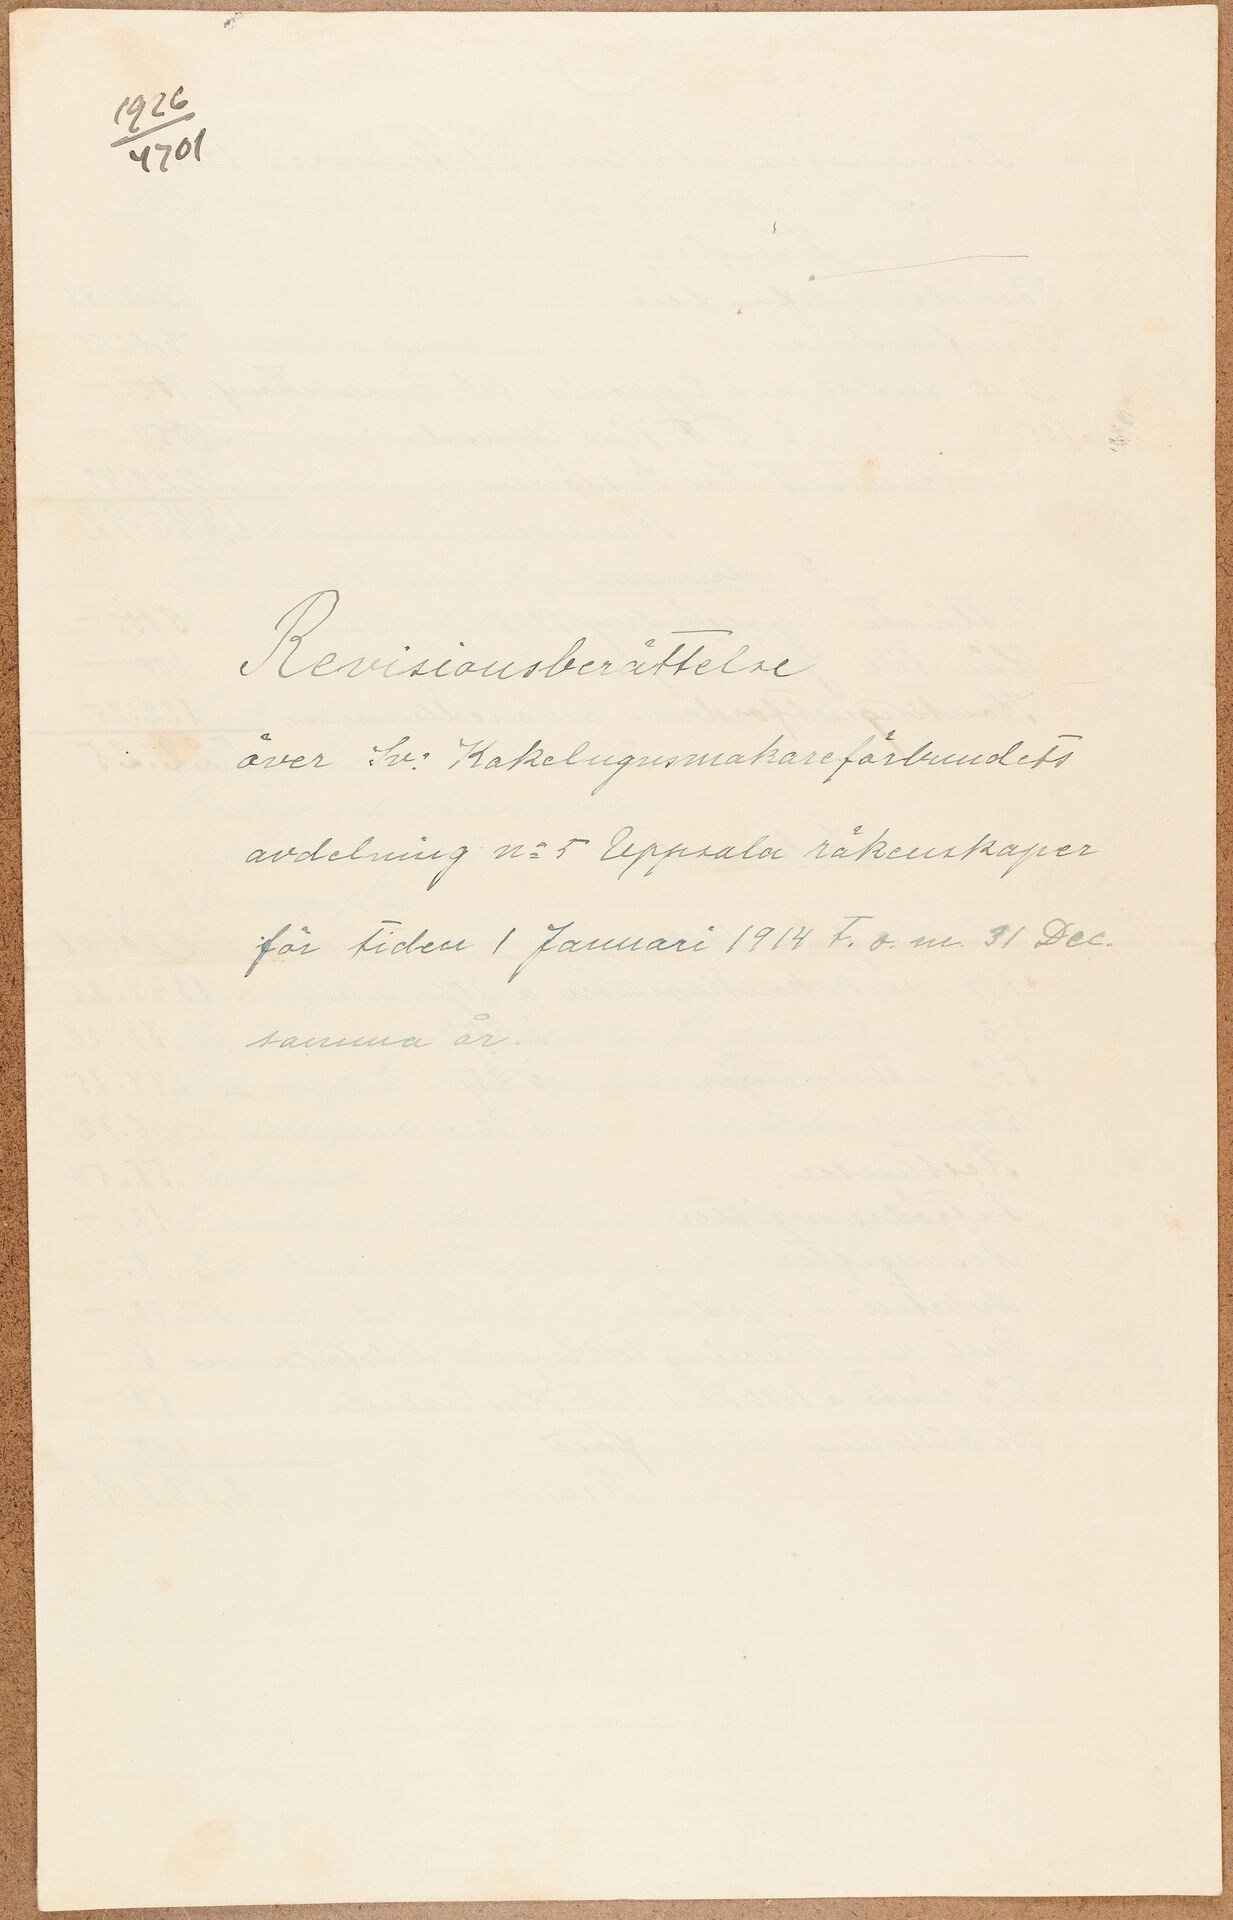 1926
4701
Revisionsberättelse
över Sv: Kakelugnsmakareförbundets
avdelning no 5 Uppsala räkenskaper
för tiden 1 Januari 1914 t. o. m. 31 Dec.
samma år.